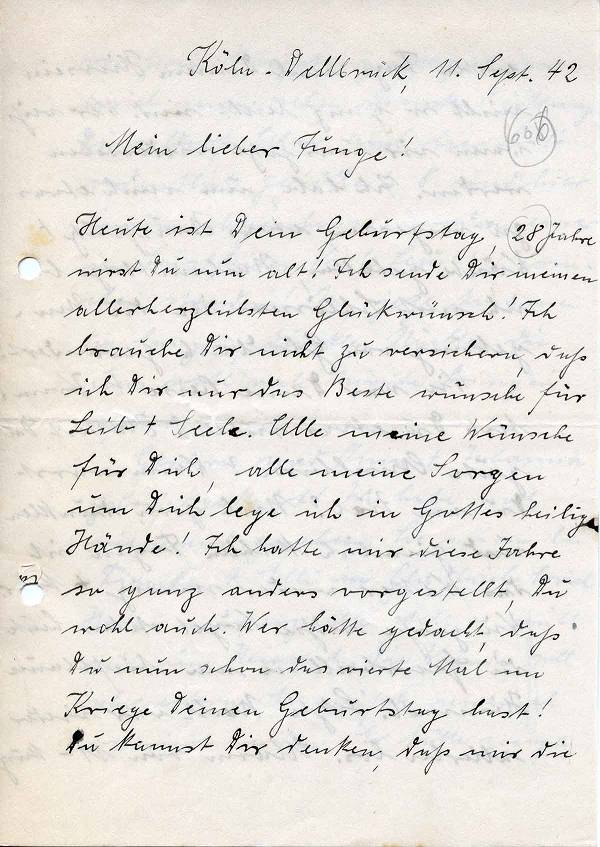 Köln-Dellbrück, 11. Sept. 42
Mein lieber Junge!
Heute ist Dein Geburtstag, 28 Jahre
wirst Du nun alt! Ich sende Dir meinen
allerherzlichsten Glückwunsch! Ich
brauche Dir nicht zu versichern, daß
ich Dir nur das Beste wünsche für
Leib + Seele. Alle meine Wünsche
für Dich, alle meine Sorgen
um Dich lege ich in Gottes heilige
Hände! Ich hatte mir diese Jahre
so ganz anders vorgestellt, Du
wohl auch. Wer hätte gedacht, daß
Du nun schon das vierte Mal im
Kriege Deinen Geburtstag hast!
Du kannst Dir denken, daß mir die